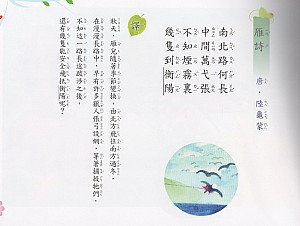 雁詩
唐．陸龜蒙
南北路何長
中間萬弋張
不知煙霧裏
幾隻到衡陽
譯
秋天，雁兒隨著季節變換，由北方飛往南方過冬，
在漫漫長路中，早有許多獵人張弓設網，等著捕殺牠們，
不知這一路長途跋涉之後，
還有幾隻能安全飛抵衡陽呢？